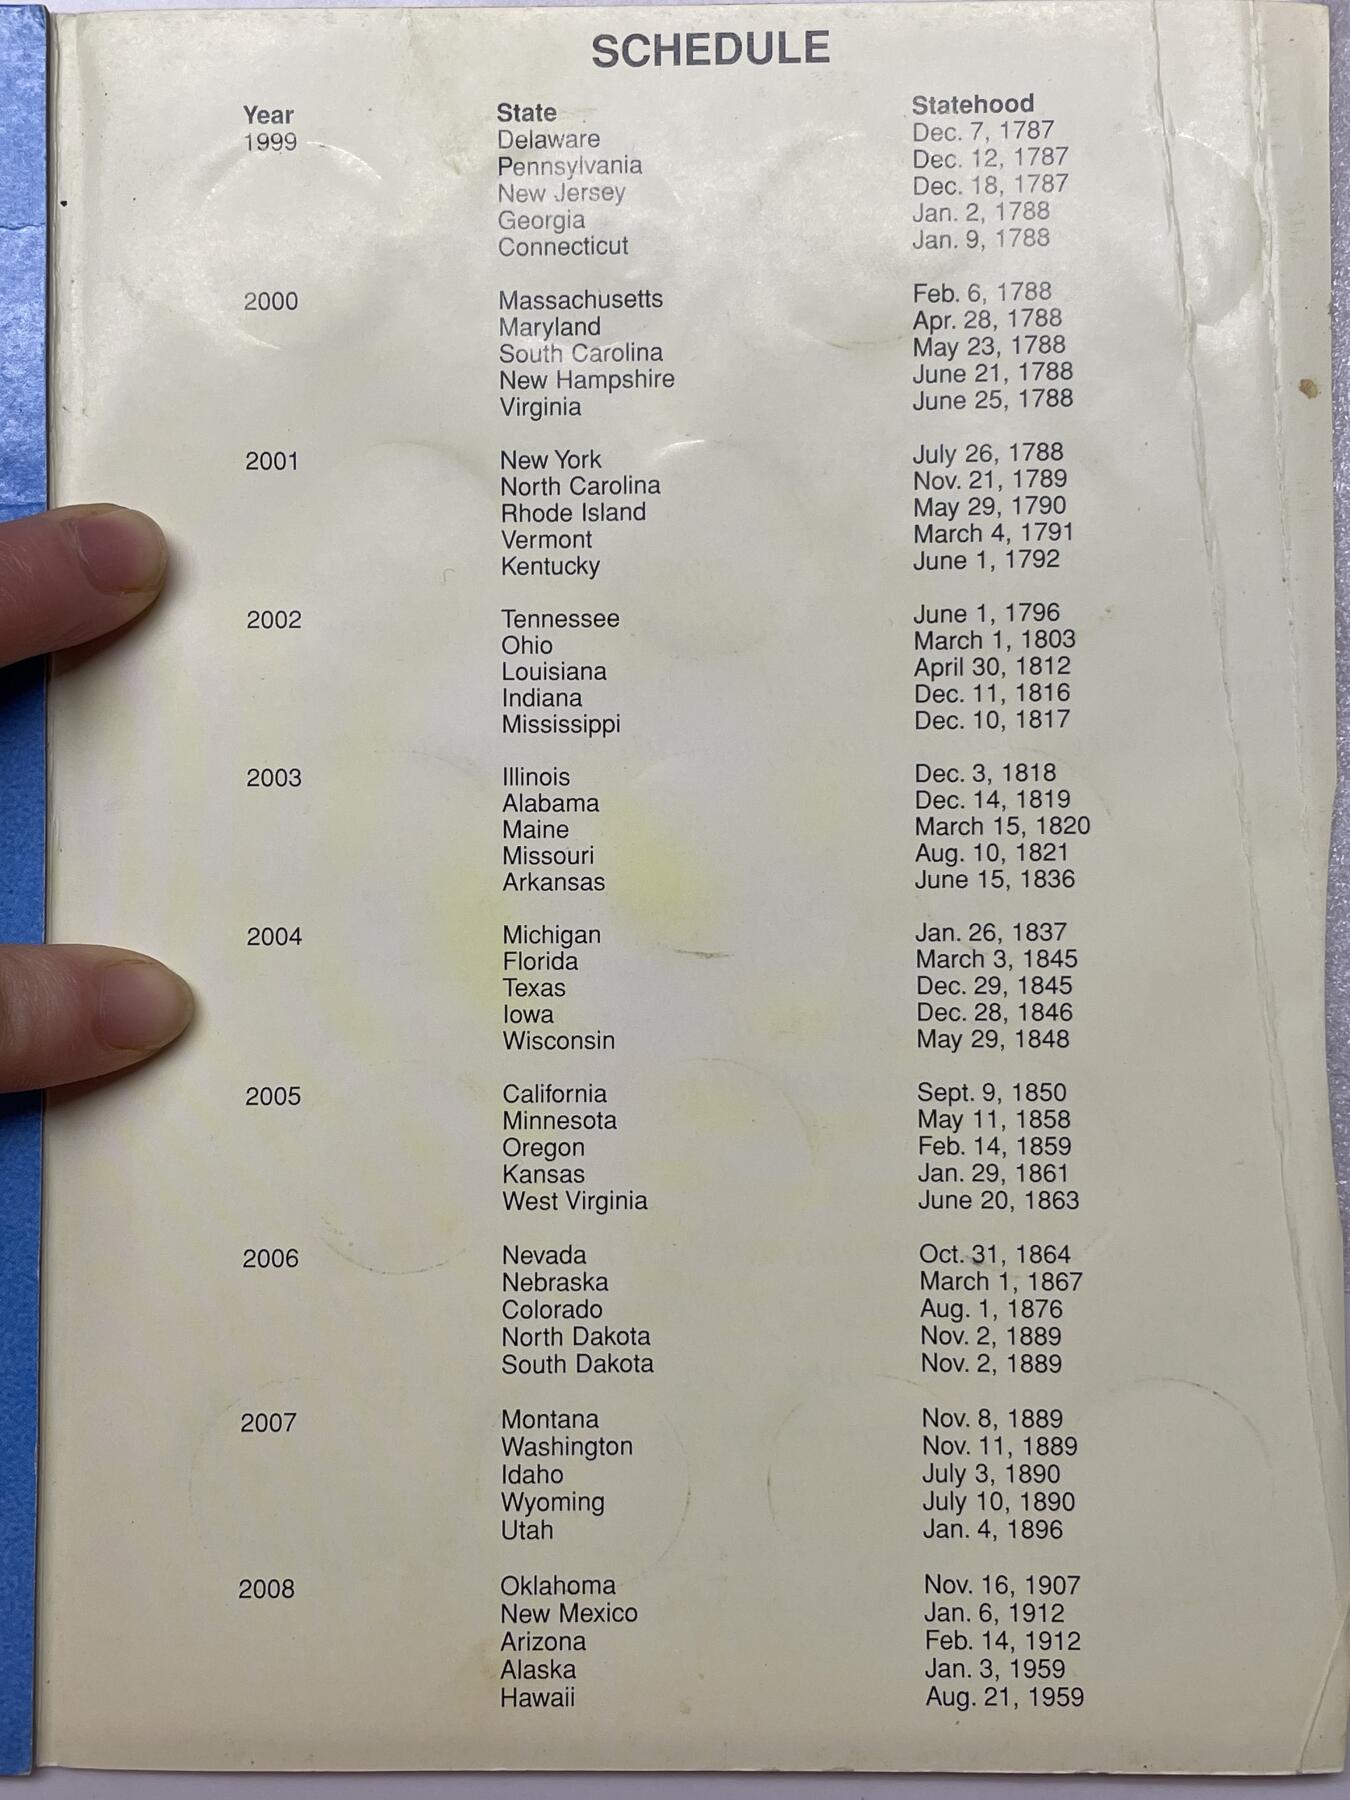 SCHEDULE
Year State Statehood
1999 Delaware Dec. 7, 1787
Pennsylvania Dec. 12, 1787
New Jersey Dec. 18, 1787
Georgia Jan. 2, 1788
Connecticut Jan. 9, 1788
2000 Massachusetts Feb. 6, 1788
Maryland Apr. 28, 1788
South Carolina May 23, 1788
New Hampshire June 21, 1788
Virginia June 25, 1788
2001 New York July 26, 1788
North Carolina Nov. 21, 1789
Rhode Island May 29, 1790
Vermont March 4, 1791
Kentucky June 1, 1792
2002 Tennessee June 1, 1796
Ohio March 1, 1803
Louisiana April 30, 1812
Indiana Dec. 11, 1816
Mississippi Dec. 10, 1817
2003 Illinois Dec. 3, 1818
Alabama Dec. 14, 1819
Maine March 15, 1820
Missouri Aug. 10, 1821
Arkansas June 15, 1836
2004 Michigan Jan. 26, 1837
Florida March 3, 1845
Texas Dec. 29, 1845
Iowa Dec. 28, 1846
Wisconsin May 29, 1848
2005 California Sept. 9, 1850
Minnesota May 11, 1858
Oregon Feb. 14, 1859
Kansas Jan. 29, 1861
West Virginia June 20, 1863
2006 Nevada Oct. 31, 1864
Nebraska March 1, 1867
Colorado Aug. 1, 1876
North Dakota Nov. 2, 1889
South Dakota Nov. 2, 1889
2007 Montana Nov. 8, 1889
Washington Nov. 11, 1889
Idaho July 3, 1890
Wyoming July 10, 1890
Utah Jan. 4, 1896
2008 Oklahoma Nov. 16, 1907
New Mexico Jan. 6, 1912
Arizona Feb. 14, 1912
Alaska Jan. 3, 1959
Hawaii Aug. 21, 1959